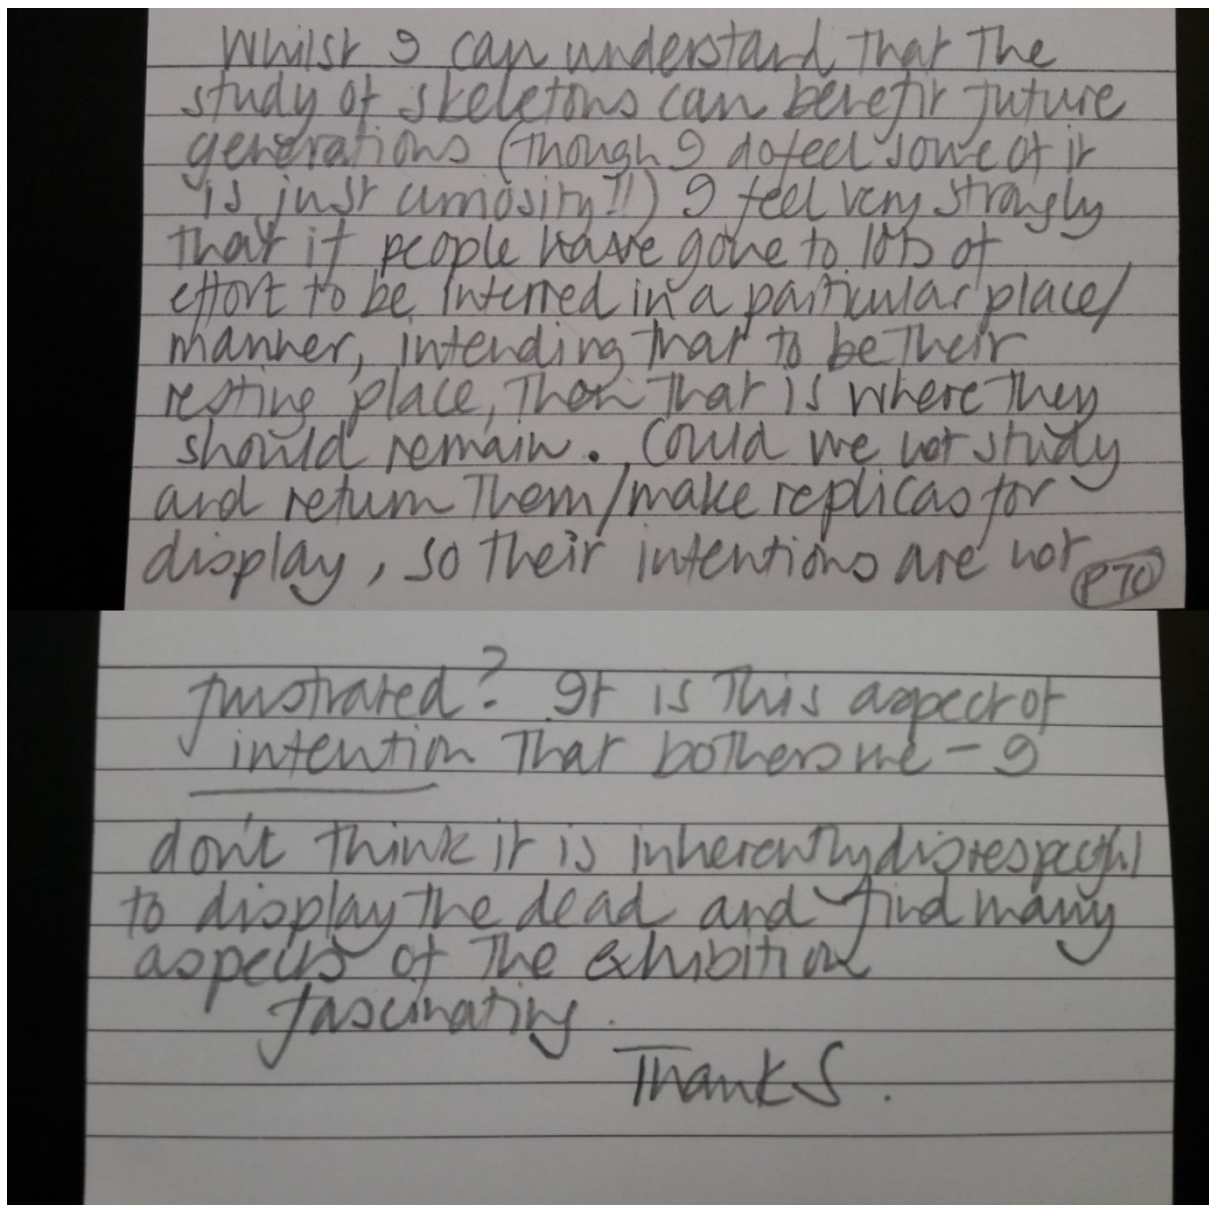 Whilst I can understand that the
study of skeletons can benefit future
generations (though I do feel some of it
is just curiosity!!) I feel very strongly
that if people have gone to lots of
effort to be interred in a particular place/
manner, intending that to be their
resting place, then that is where they
should remain. Could we not study
and return them/make replicas for
display, so their intentions are not
PTO
frustrated? It is this aspect of
intention that bothers me - I
don't think it is inherently disrespectful
to display the dead and find many
aspects of the exhibition
fascinating.
Thanks.